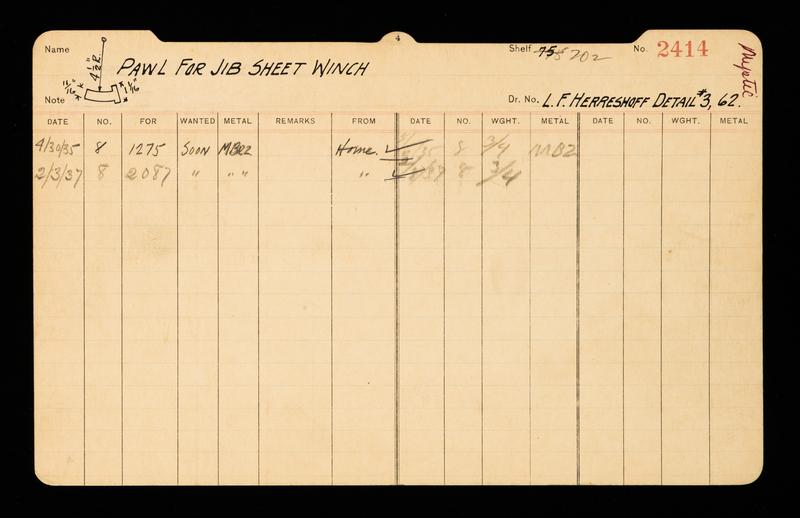 4
Name
PAWL FOR JIB SHEET WINCH
Shelf 75 202
No. 2414
Mystic
4 1/2" R.
11/16"
1 1/16"
Note
Dr. No. L.F. HERRESHOFF DETAIL #3, 62.
DATE NO. FOR WANTED METAL REMARKS FROM DATE NO. WGHT. METAL DATE NO. WGHT. METAL
4/30/35 8 1275 SOON MBRZ Home. ✓ 8 3/4 MBZ
2/3/37 8 2087 " " " " " ✓ 8 3/4